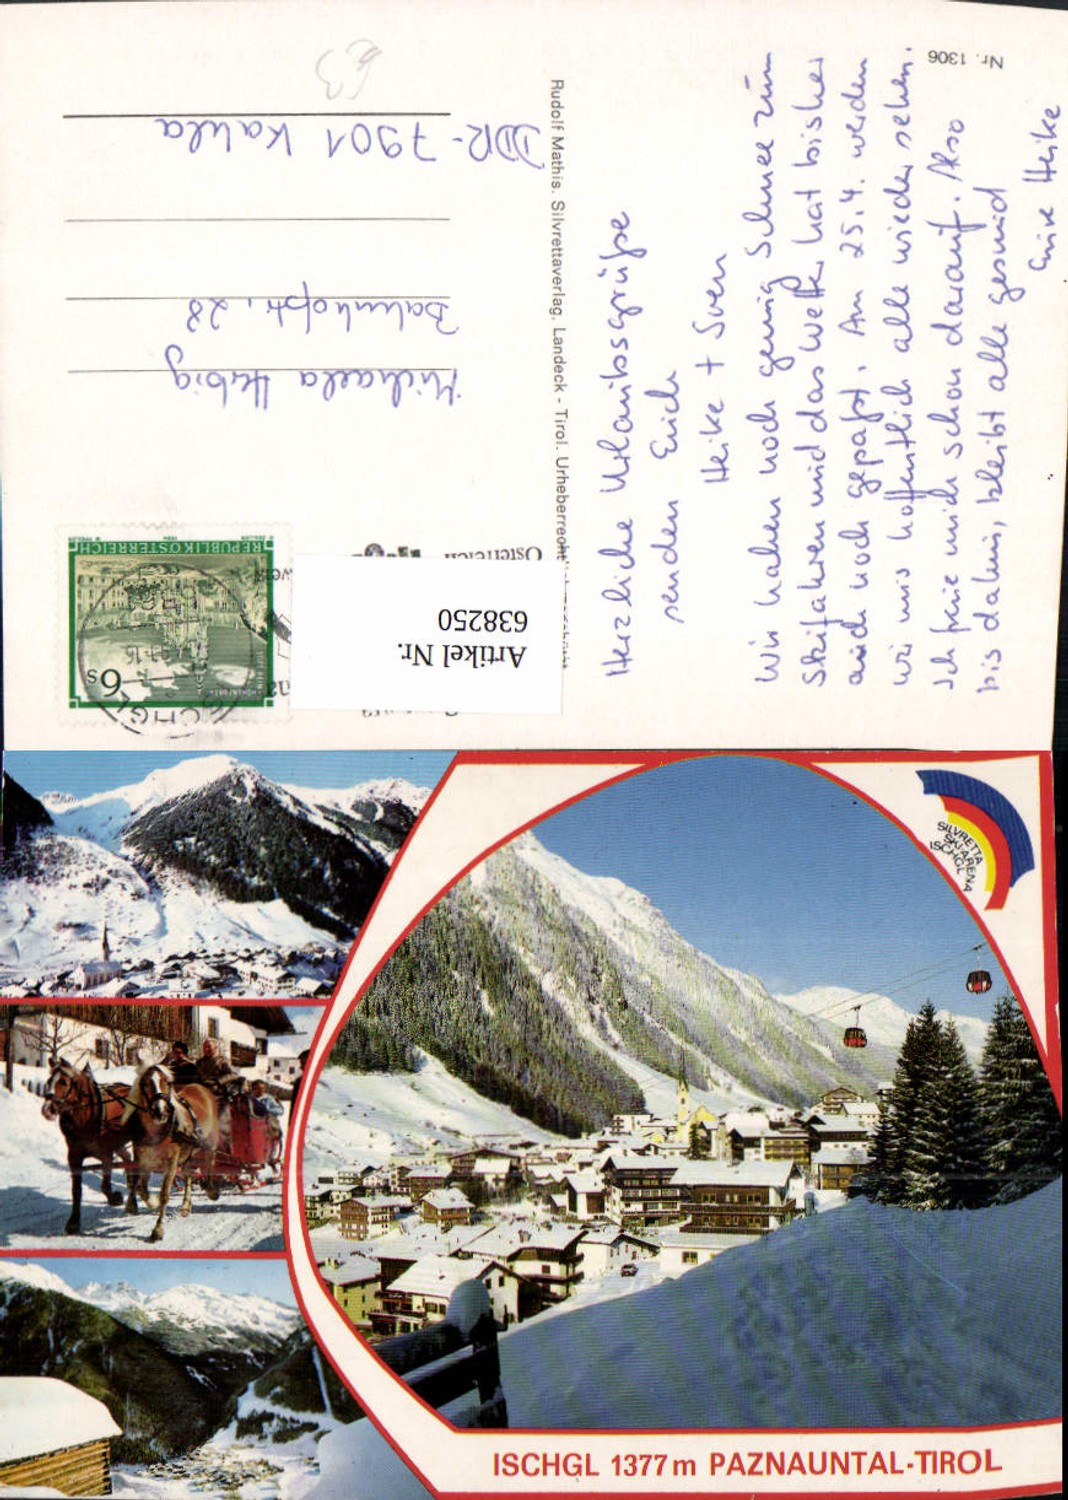 Nr. 1306
Herzliche Urlaubsgrüße
senden Euch
Heike + Sven
Wir haben noch genug Schnee zum
Skifahren und das Wetter hat bisher
auch noch gepaßt. Am 25.4. werden
wir uns hoffentlich alle wieder sehen.
Ich freue mich schon darauf. Also
bis dahin, bleibt alle gesund
Eure Heike
Rudolf Mathis, Silvrettaverlag, Landeck - Tirol. Urheberrechtlich
REPUBLIK ÖSTERREICH
6s
ISCHGL
Österreich
Artikel Nr.
638250
Michaela Herbig
Bahnhofstr. 28
DDR-7901 Kahla
63
SILVRETTA
SKI-ARENA
ISCHGL
ISCHGL 1377 m PAZNAUNTAL-TIROL